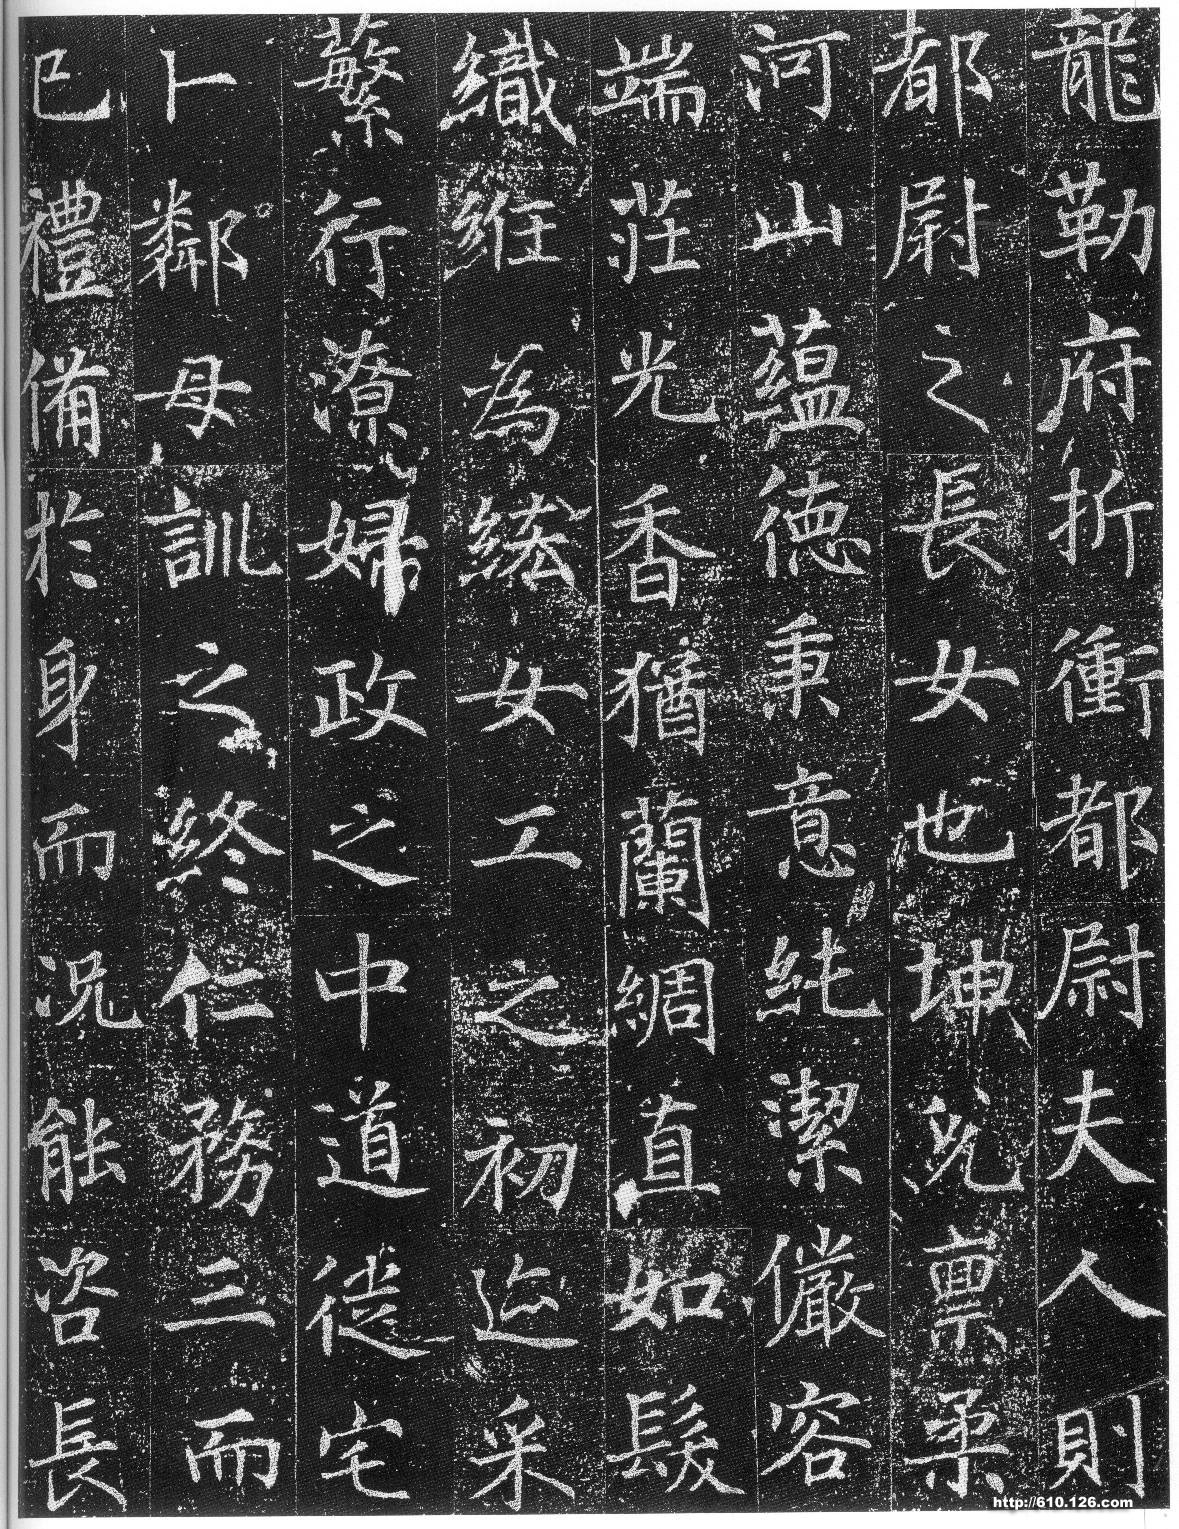 龍勒府折衝都尉夫人則
都尉之長女也坤兌禀柔
河山蘊德秉意純潔儼容
端莊光香猶蘭綢直如髮
織絍為綌女工之初迨采
蘩行潦婦政之中道徙宅
卜鄰母訓之終仁務三而
已禮備於身而況能咨長
http://610.126.com